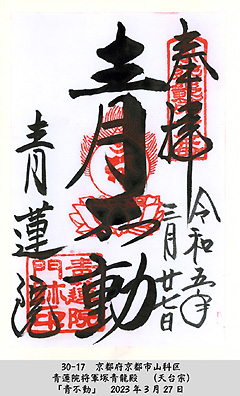 奉拝
令和五年
三月廿七日
青不動
青蓮院
青蓮院
門跡印
30-17 京都府京都市山科区
青蓮院将軍塚青龍殿 （天台宗）
「青不動」 2023年3月27日